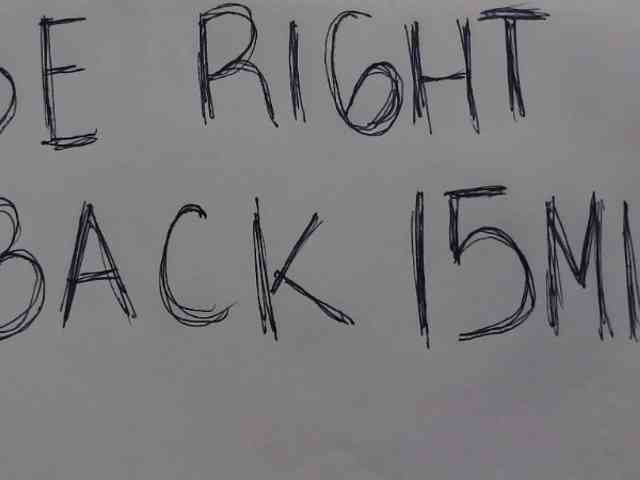 BE RIGHT
BACK 15MI